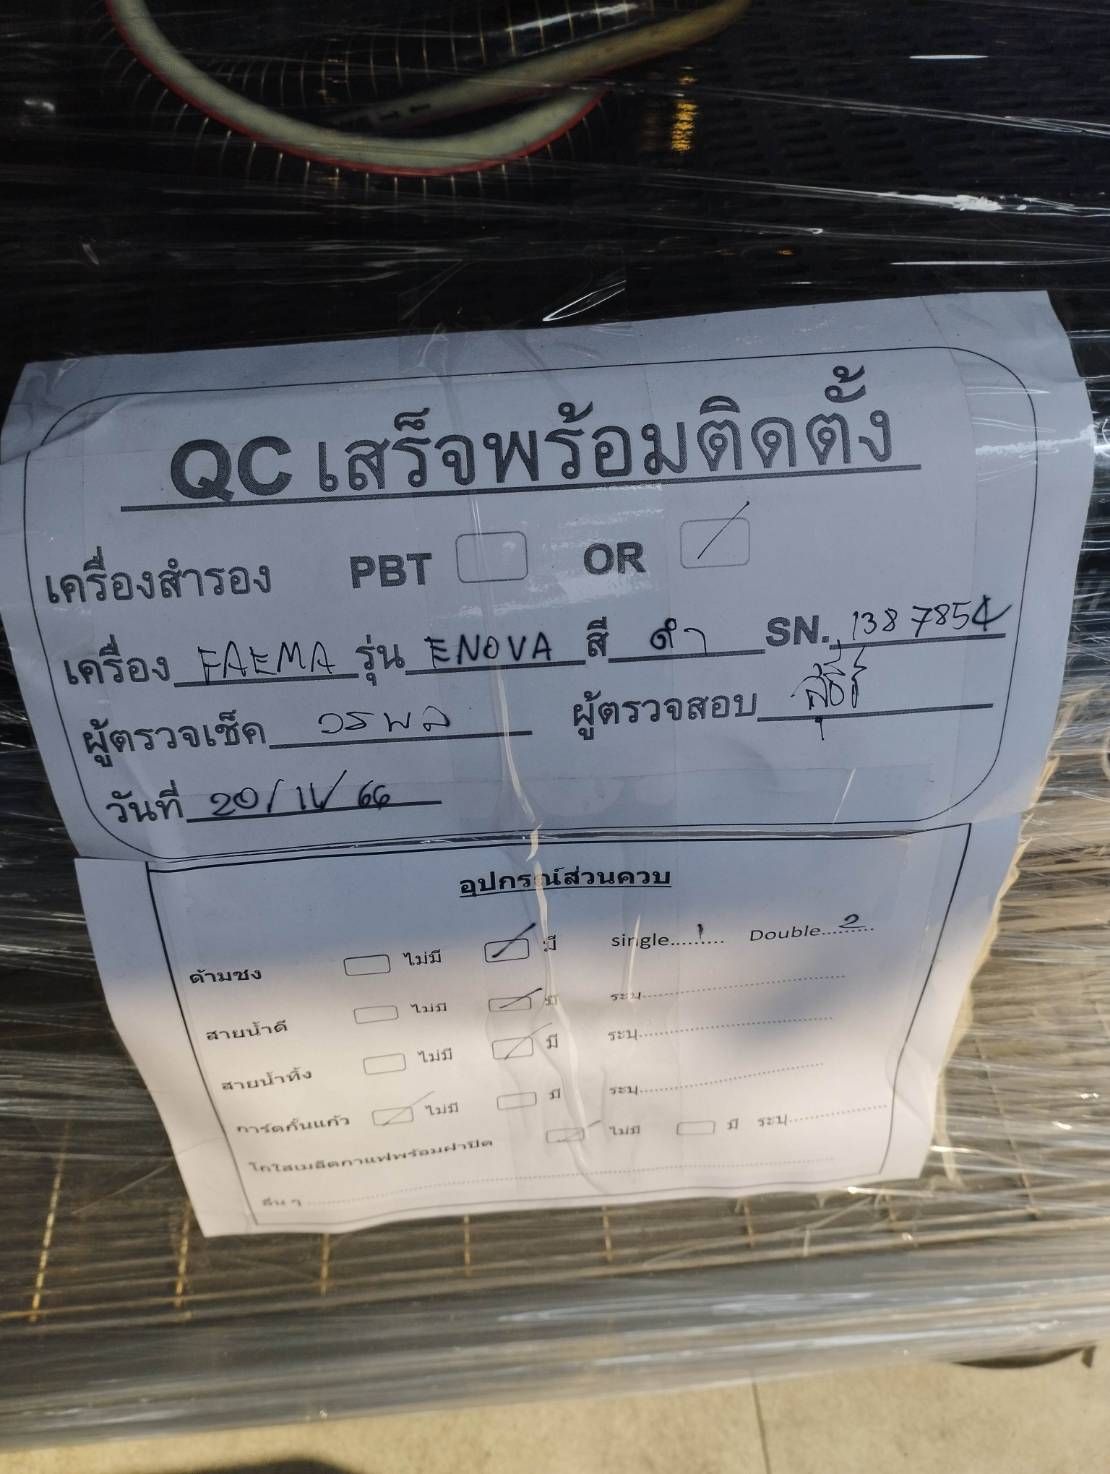 QC เสร็จพร้อมติดตั้ง
เครื่องสำรอง PBT OR
เครื่อง FAEMA รุ่น ENOVA สี ดำ SN. 1387854
ผู้ตรวจเช็ค วรพล ผู้ตรวจสอบ
วันที่ 20/11/66
อุปกรณ์ส่วนควบ
ด้ามชง ไม่มี มี single.....1.... Double...2......
สายน้ำดี ไม่มี มี ระบุ
สายน้ำทิ้ง ไม่มี มี ระบุ
การ์ดกั้นแก้ว ไม่มี มี ระบุ
โถใส่เมล็ดกาแฟพร้อมฝาปิด ไม่มี มี ระบุ
อื่น ๆ